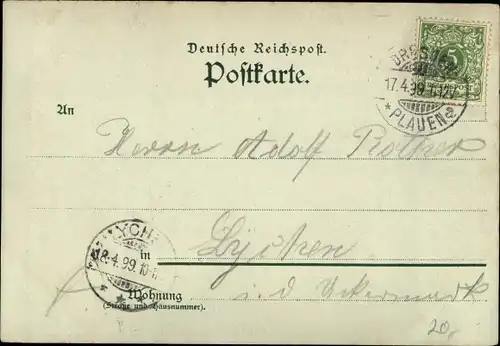 Deutsche Reichspost.
Postkarte.
5
DRESDEN
17.4.99.
* PLAUEN
An
Herrn Adolf Rother
LYCHEN
18.4.99. 10-
* * *
in
Lychen
Wohnung
(Straße und Hausnummer).
i. d. Uckermark
20,-